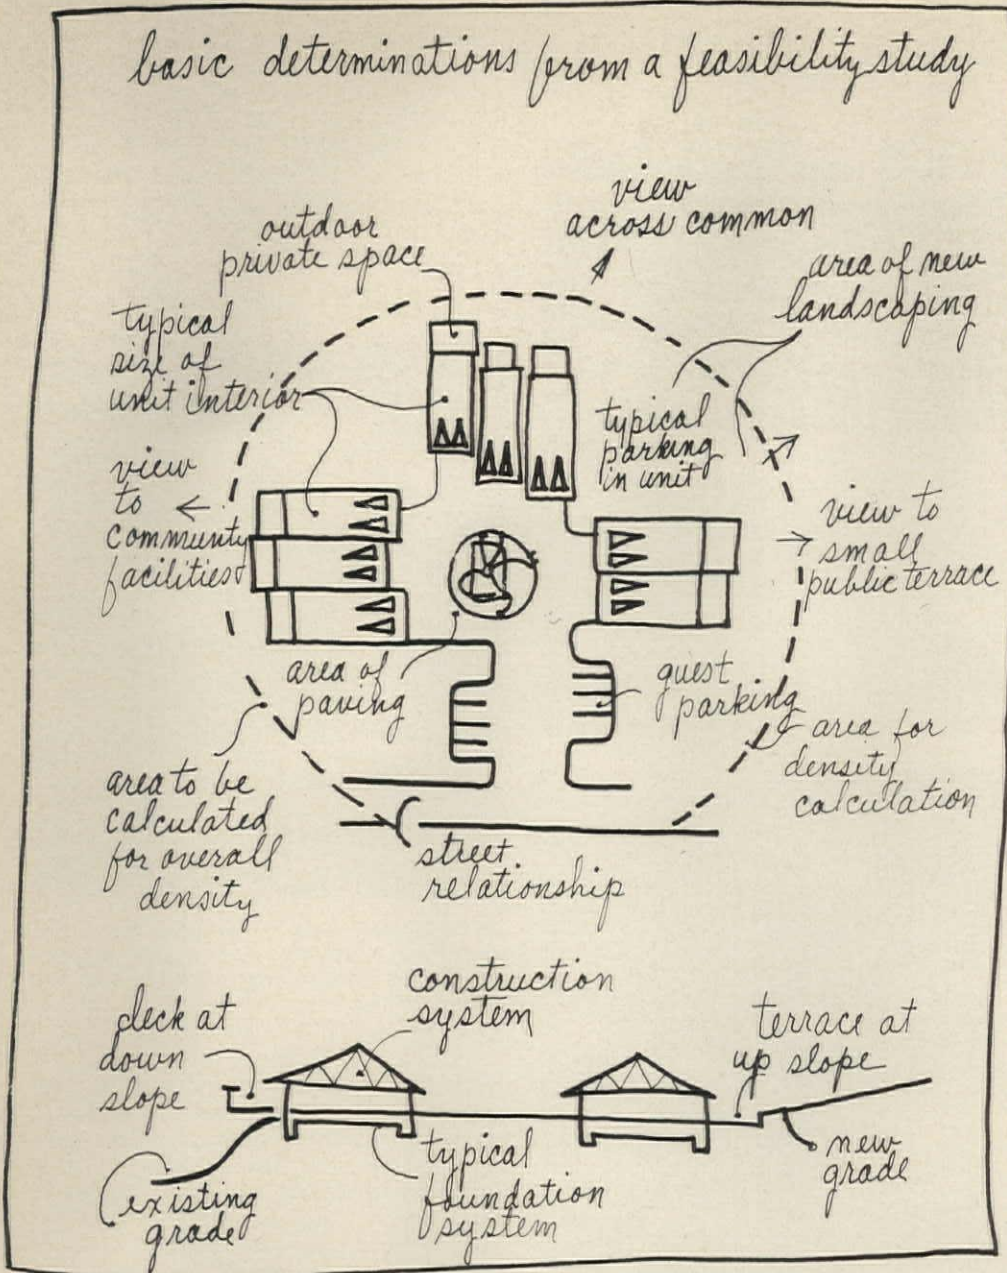 basic determinations from a feasibility study
view
across common
outdoor
private space
area of new
landscaping
typical
size of
unit interior
typical
parking
in unit
view
to
community
facilities
view to
small
public terrace
area of
paving
guest
parking
area for
density
calculation
area to be
calculated
for overall
density
street
relationship
construction
system
deck at
down
slope
terrace at
up slope
typical
foundation
system
new
grade
existing
grade